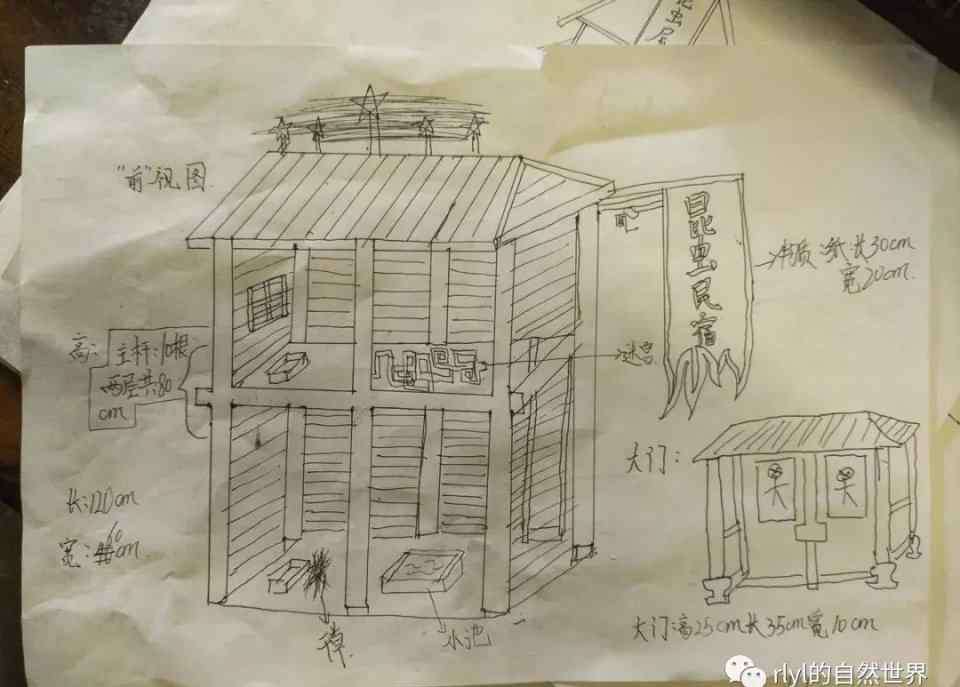 "前"视图
昆
虫
民
宿
质:纸 长30cm
宽20cm
高:
主杆:10根
两层共80
cm
迷宫
大门:
长:120cm
宽:60cm
水池
大门:高25cm长35cm宽10cm
rlyl的自然世界